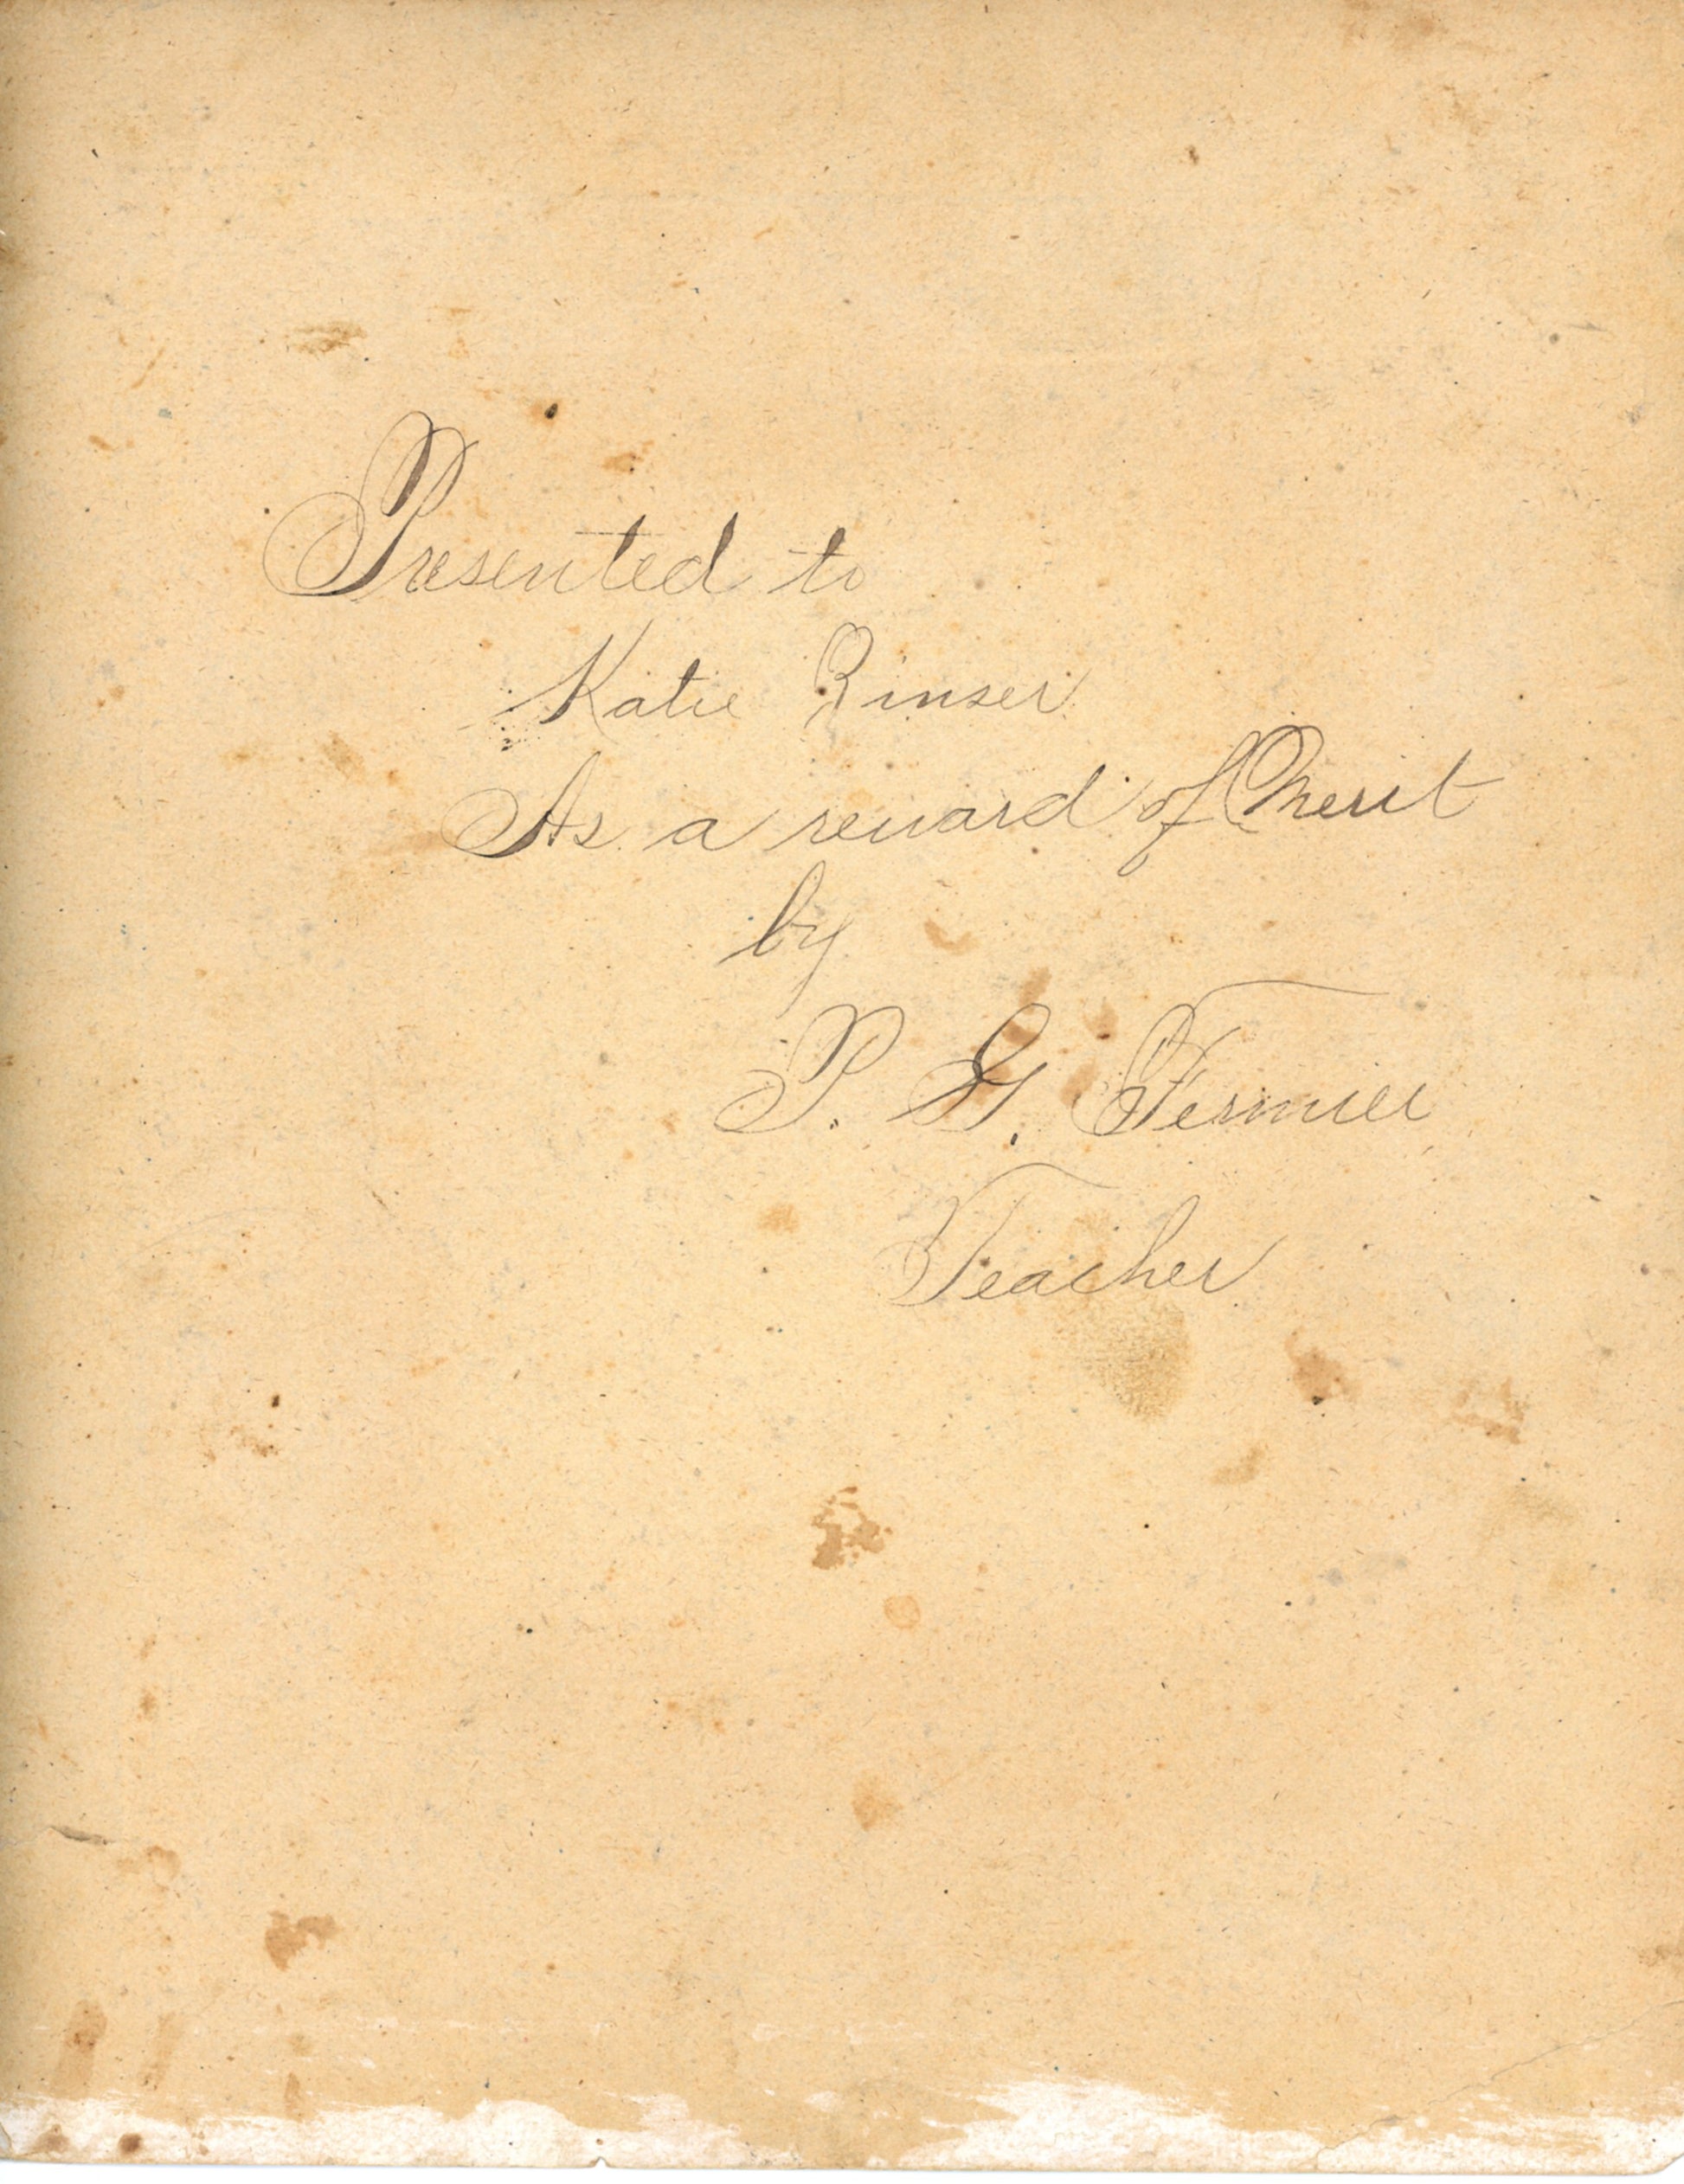 Presented to
Katie Zinser
As a reward of Merit
by
P. G. Fermier
Teacher